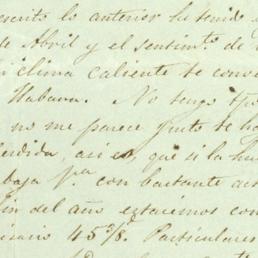 escrito lo anterior he tenido
de Abril y el sentimto. de
clima caliente te conv
Habana. No tengo tpo.
no me parece justo te ha
perdida, asi es, que si la hu
baja pa. con bastante
fin del año estaremos con
45 3/8. Particulares